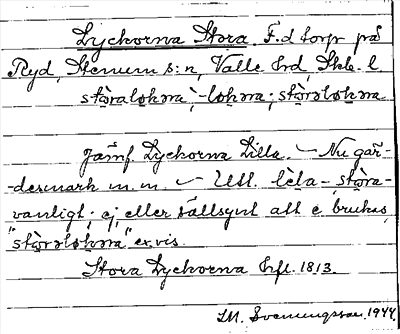 Lyckorna Stora. F.d torp på
Ryd, Stenums s:n, Valle hrd, Skb. l.
stɷ̀ralɷkɷra, -lɷkɷra; stɷ̀rəlɷkɷra
Jämf. Lyckorna Lilla. – Nu går-
-desmark m.m. – Utt. lèla-, stɷ̀ra-
vanligt; ej eller sällsynt att e brukas,
"stɷ̀rəlɷkɷra" ex.vis.
Stora Lyckorna Hfl. 1813.
I.M. Svenungsson. 1944.